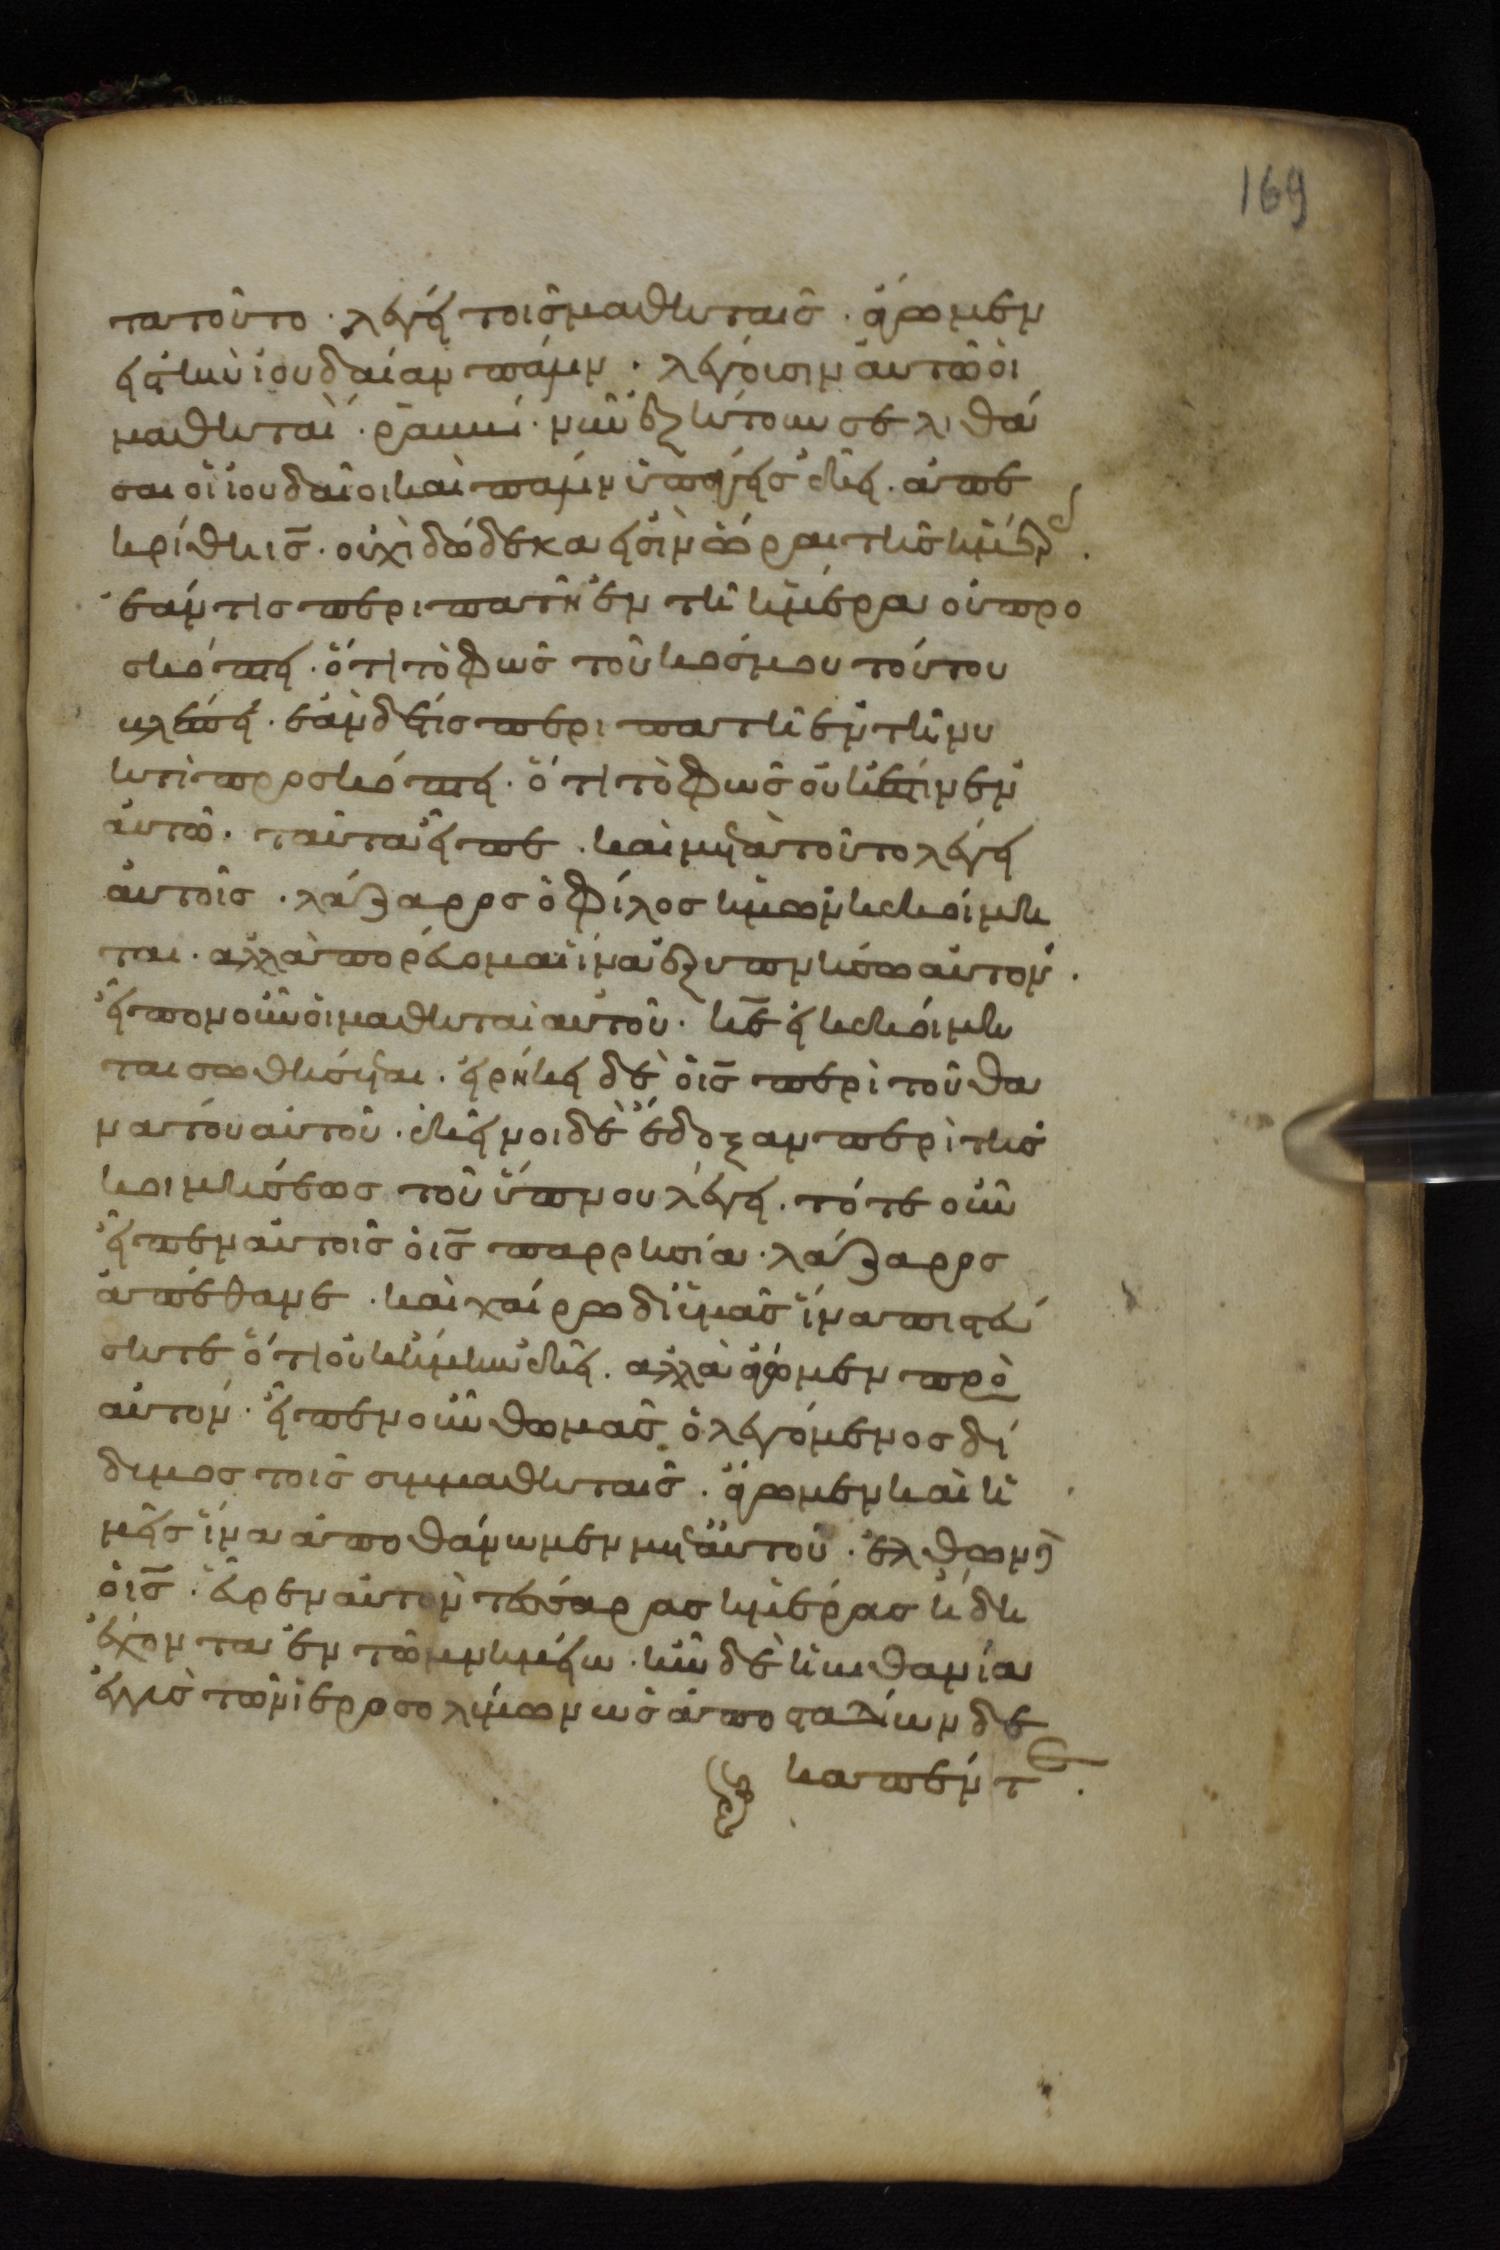 169
τα τοῦτο · λέγει τοῖς μαθηταῖς · ἄγωμεν
εἰς τὴν ἰουδαίαν πάλιν · λέγουσιν αὐτῶ οἱ
μαθηταὶ · ῥαββί · νῦν ἐζήτουν σε λιθά
σαι οἱ ἰουδαῖοι καὶ πάλιν ὑπάγεις ἐκεῖ · ἀπε
κρίθη ις̅ · οὐχὶ δώδεκα εἰσὶν ὧραι τῆς ἡμέρας ·
ἐάν τις περιπατῆ ἐν τῆ ἡμέρα οὐ προ
σκόπτει · ὅτι τὸ φῶς τοῦ κόσμου τούτου
βλέπει · ἐὰν δέ τις περιπατῆ ἐν τῆ νυ
κτὶ προσκόπτει · ὅτι τὸ φῶς οὐκ ἔστιν ἐν
αὐτῶ · ταῦτα εἶπε · καὶ μετὰ τοῦτο λέγει
αὐτοῖς · λάζαρος ὁ φίλος ἡμῶν κεκοίμη
ται · ἀλλὰ πορεύομαι ἵνα ἐξυπνήσω αὐτόν ·
εἶπον οὖν οἱ μαθηταὶ αὐτοῦ · κε̅ εἰ κεκοίμη
ται σωθήσεται · εἰρήκει δὲ ὁ ις̅ περὶ τοῦ θα
νάτου αὐτοῦ · ἐκεῖνοι δὲ ἔδοξαν περὶ τῆς
κοιμήσεως τοῦ ὕπνου λέγει · τότε οὖν
εἶπεν αὐτοῖς ὁ ις̅ παρρησία · λάζαρος
ἀπέθανε · καὶ χαίρω δι ὑμᾶς ἵνα πιστεύ
σητε ὅτι οὐκ ἤμην ἐκεῖ · ἀλλὰ ἄγωμεν πρὸ
αὐτόν · εἶπεν οὖν θωμᾶς ὁ λεγόμενος δί
διμος τοῖς συμμαθηταῖς · ἄγωμεν καὶ ἡ
μεῖς ἵνα ἀποθάνωμεν μετ αὐτοῦ · ἐλθὼν οὖν
ὁ ις̅ · εὗρεν αὐτὸν τέσσαρας ἡμέρας ἤδη
ἔχοντα ἐν τῶ μνημείω · ἦν δὲ ἡ βηθανία
ἐγγὺς τῶν ἱεροσολύμων ὡς ἀπὸ σταδίων δε
καπέντε ·